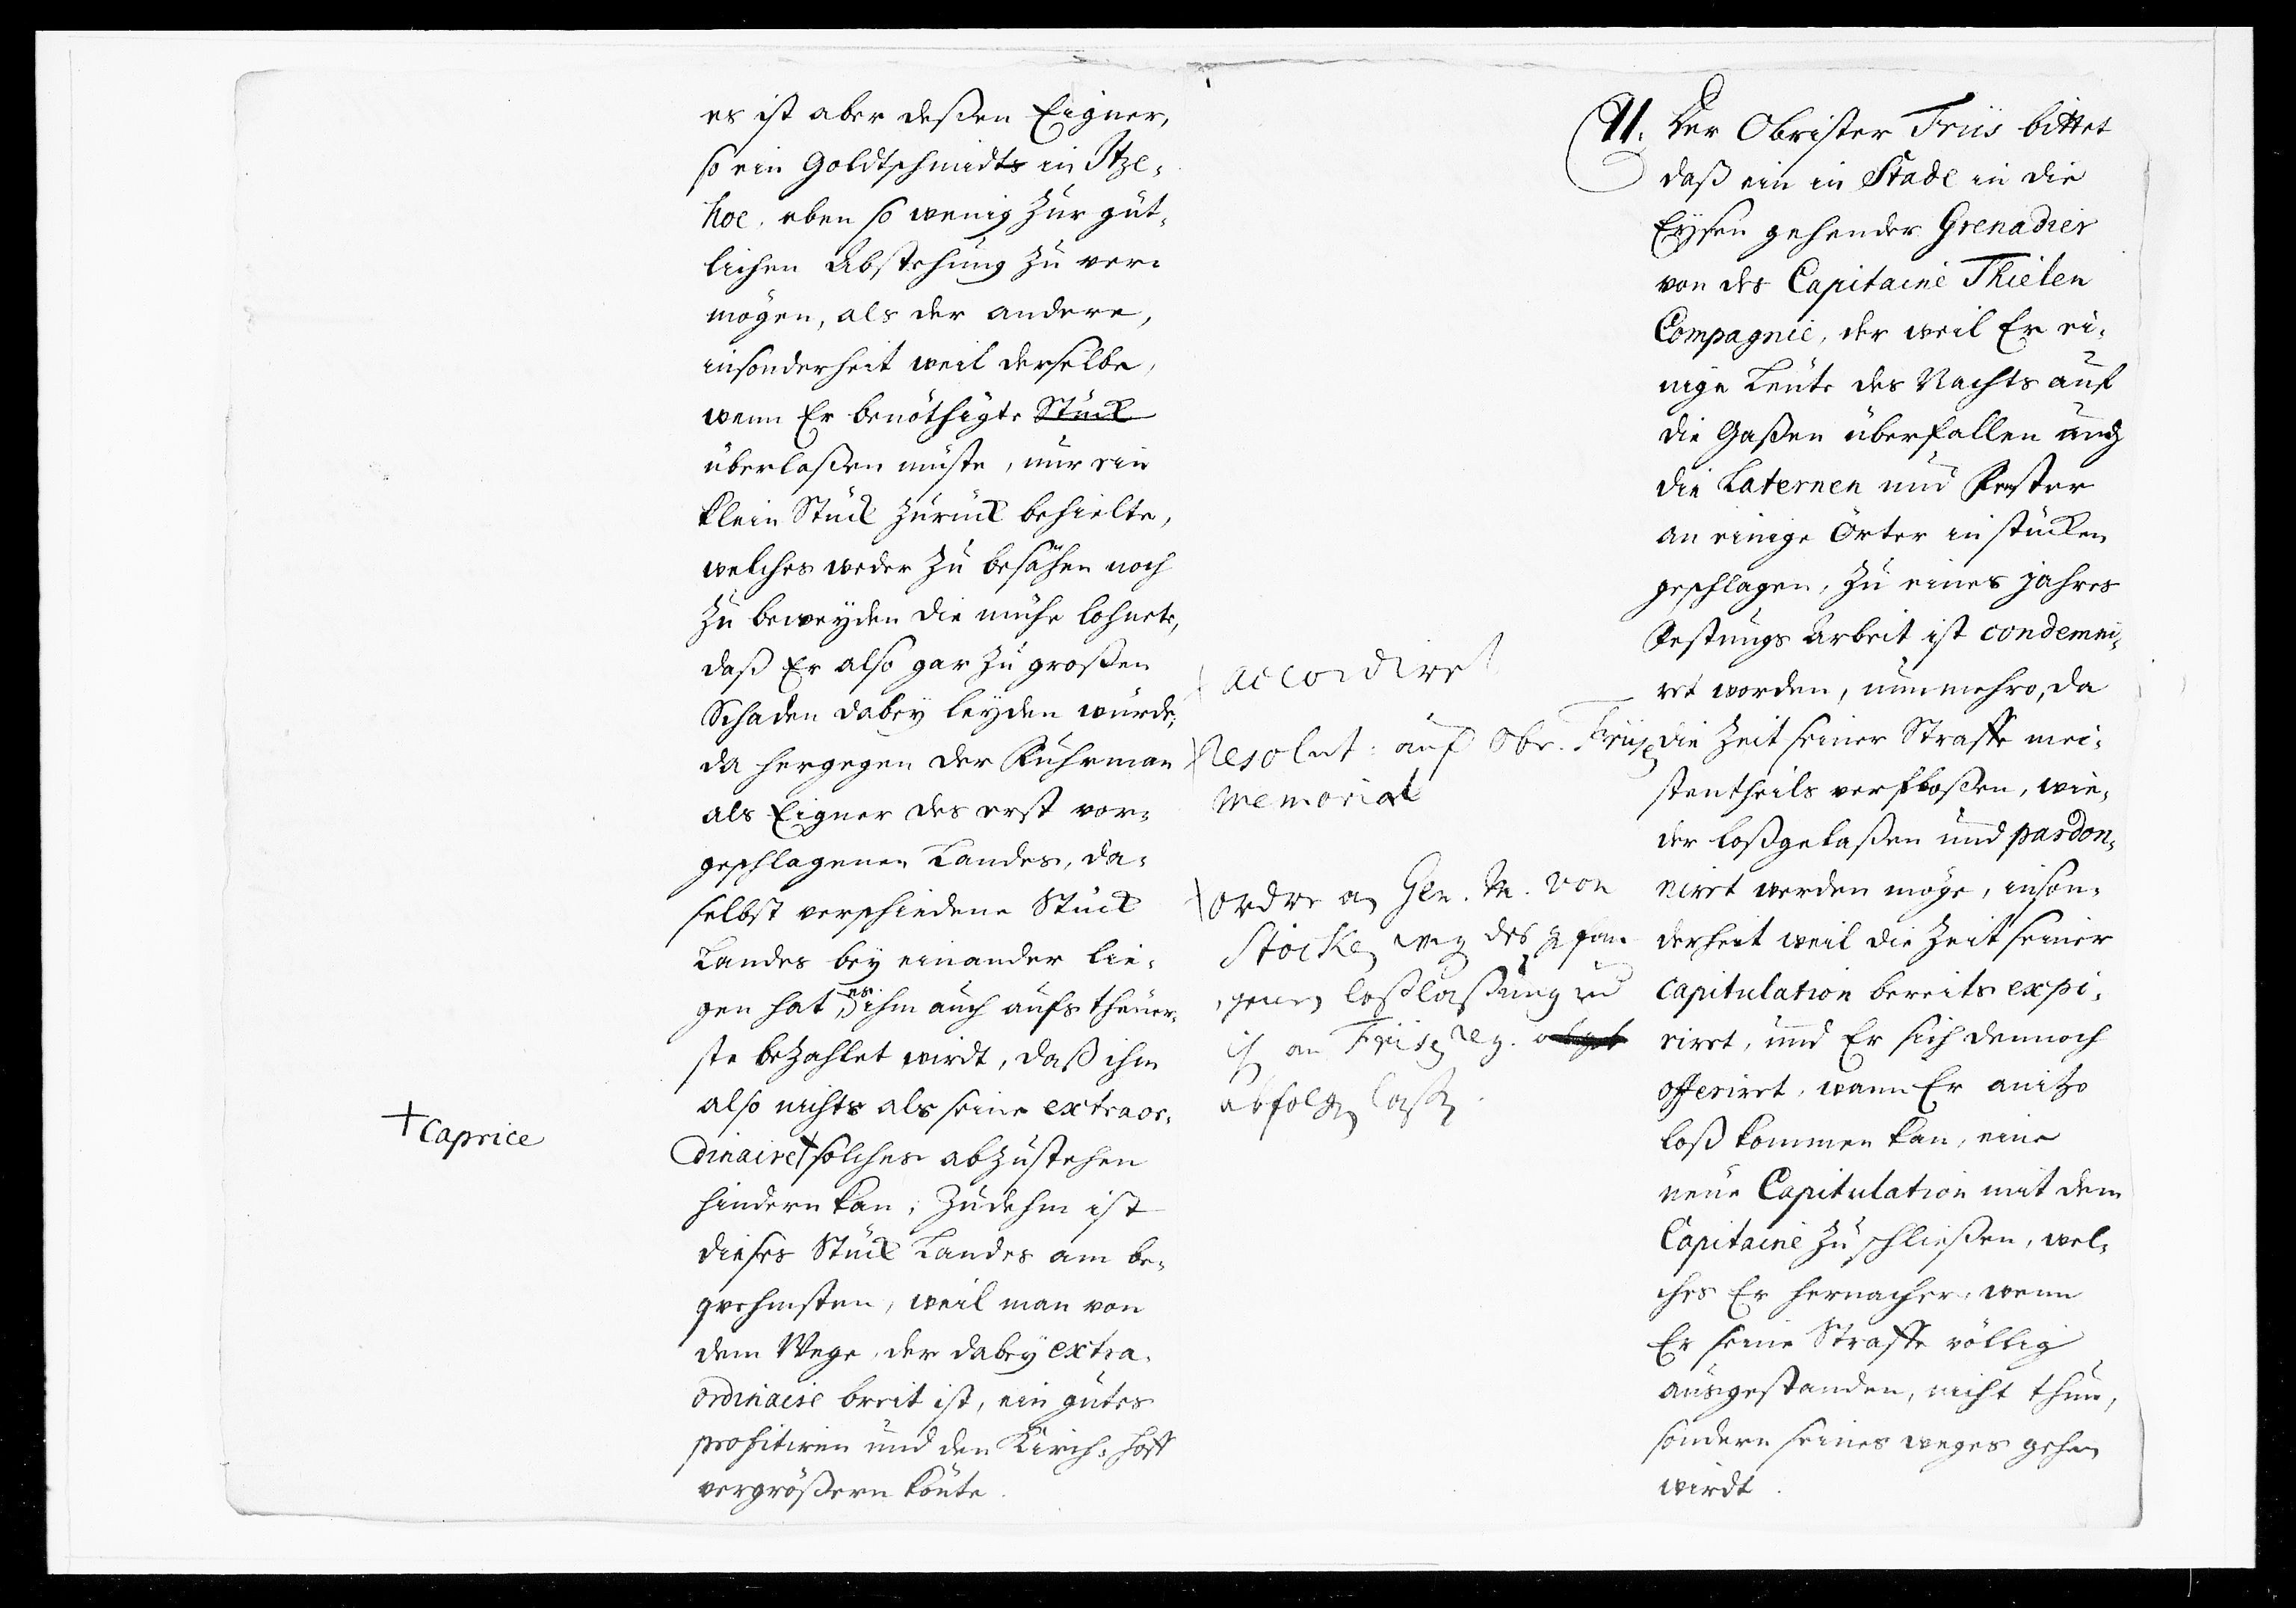 es ist aber deßen Eigner,
so ein Goldtschmidts in Itze-
hoe. eben so wenig zur güt-
lichen Abstehung zu ver-
mögen, als der andere,
insonderheit weil derselbe,
wenn Er benöthigte Stück
überlaßen müste, nur ein
klein Stück zurück behielte,
welches weder zu besähen noch
zu beweyden die mühe lohnete,
daß Er also gar zu großen
Schaden dabey leyden würde,
da hergegen der Fuhrman
als Eigner des erst vor-
geschlagenen Landes, da-
selbst verschiedene Stück
Landes bey einander lie-
gen hat, es ihm auch aufs theuer-
ste bezahlet wirdt, daß ihm
also nichts als seine extraor-
dinaire + solches abzustehen
hindern kan; zudehm ist
dieses Stück Landes am be-
qvehmsten, weil man von
dem Wege, der dabey extra-
ordinaire breit ist, ein gutes
profitiren und den Kirch-hoff
vergrößern könte.
+ Caprice
accordiret
Resolut: auf Obr. Friis
memorial
ordre an Gen. M. von
Stöcken weg. des gefan-
genen loßlaßung und
an Friis Reg.
abfolgen laßen.
11. Der Obrister Friis bittet
daß ein in Stade in die
Eysen gehender Grenadier
von des Capitaine Thielen
Compagnie, der weil Er ei-
nige Leute des Nachts auf
die Gaßen überfallen und
die Laternen und Fenster
an einige Örter in stücken
geschlagen, zu eines jahres
Festungs Arbeit ist condemni-
ret worden, nunmehro, da
die Zeit seiner Straffe mei-
stentheils verfloßen, wie-
der loßgelaßen und pardon-
niret werden möge, inson-
derheit weil die Zeit seiner
capitulation bereits expi-
riret, und Er sich dennoch
offeriret, wann Er anitzo
loß kommen kan, eine
neue Capitulation mit dem
Capitaine zu schließen, wel-
ches Er hernacher, wenn
Er seine Straffe völlig
ausgestanden, nicht thun,
sondern seines weges gehen
wirdt.